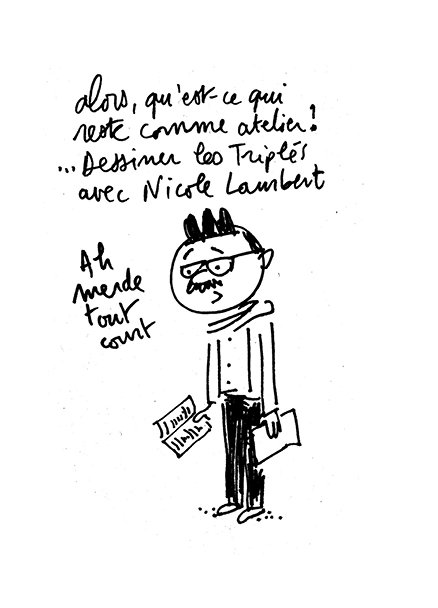 alors, qu'est-ce qui
reste comme atelier !
... Dessiner les Triplés
avec Nicole Lambert
Ah
merde
tout
court